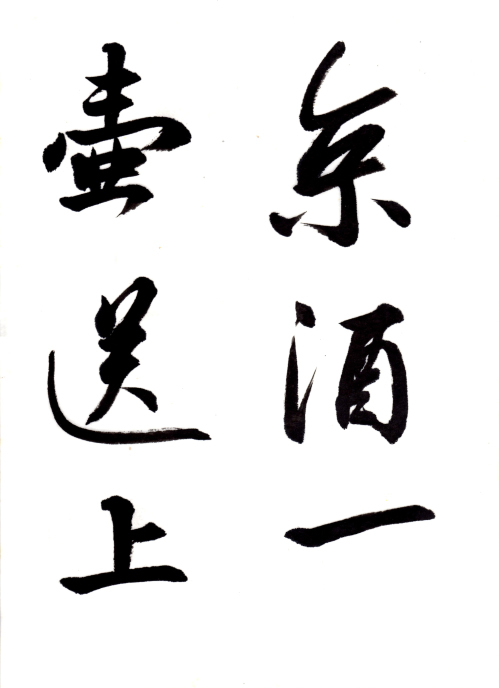 京酒一
壺送上